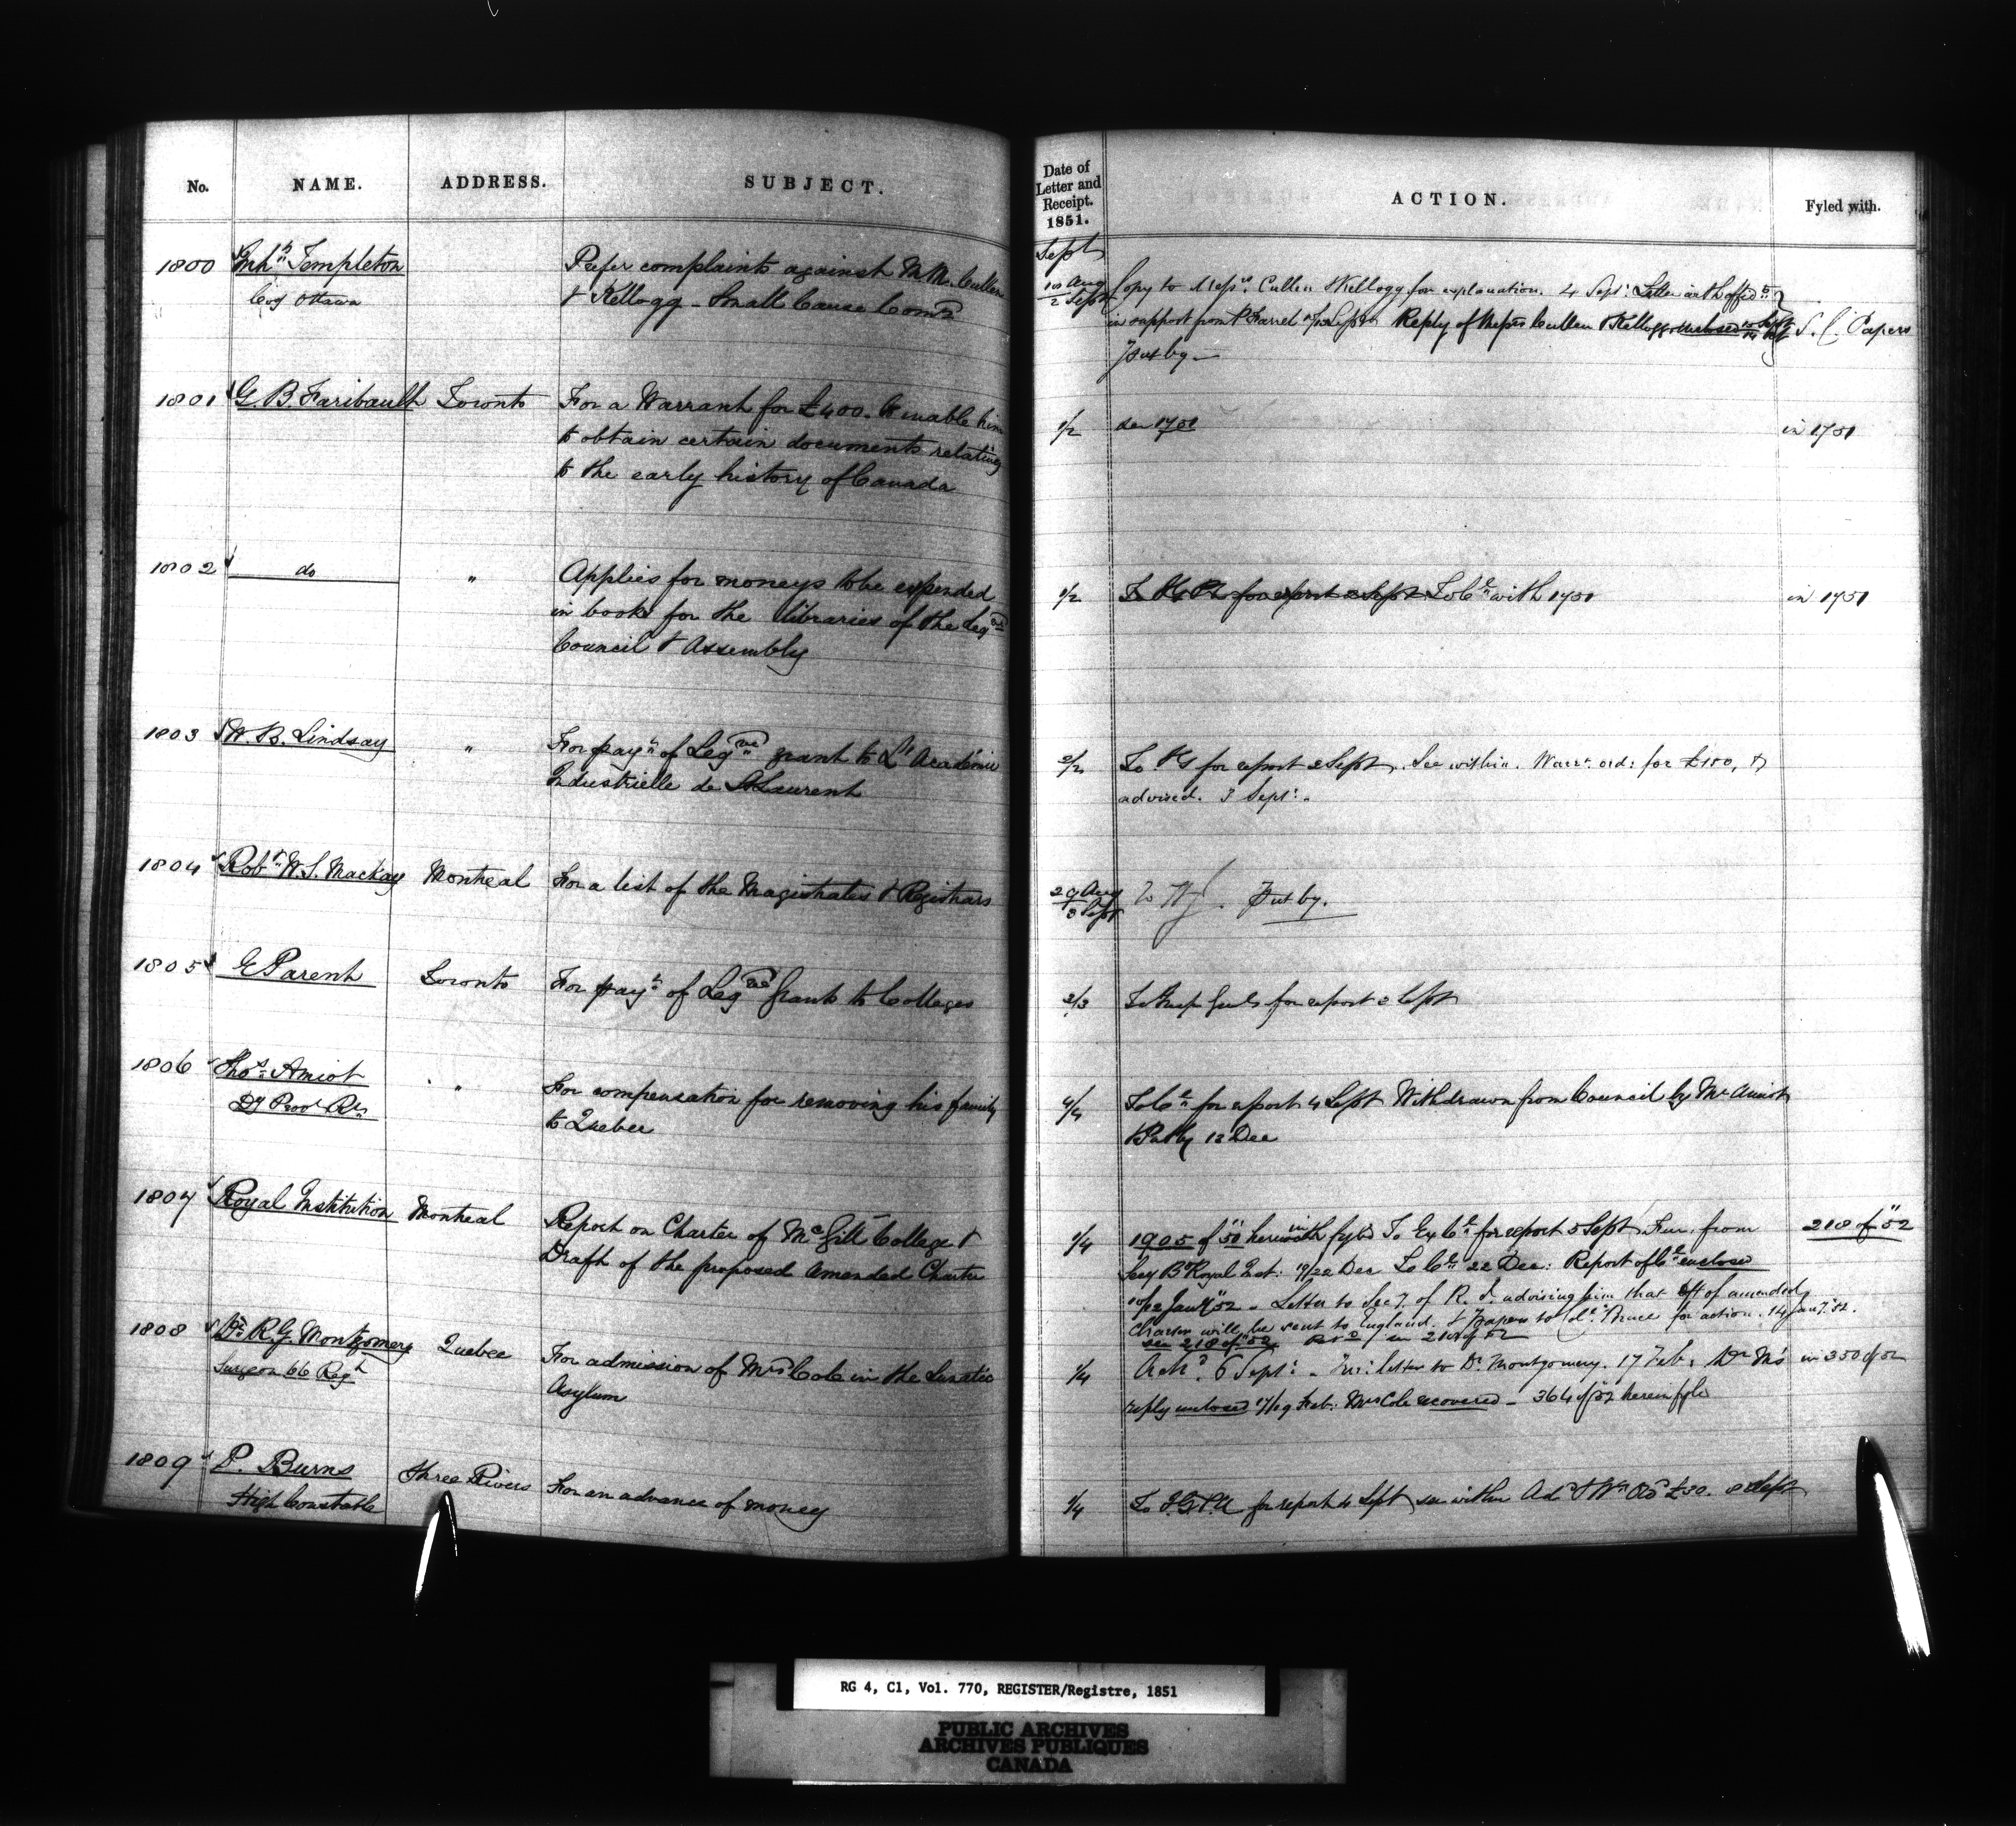 No. NAME. ADDRESS. SUBJECT.
1800 Inhts Templeton Prefer complaints against M.M. Cullen
Coy Ottawa & Kellogg - Small Cause Comrs
1801 G. B. Faribault Toronto For a Warrant for £400. to enable him
to obtain certain documents relating
to the early history of Canada
1802 do " Applies for moneys to be expended
in books for the libraries of the Legve
Council & Assembly
1803 W. B. Lindsay " For payt of Legve grant to L'Académie
Industrielle de St Laurent
1804 Robt W. S. Mackay Montreal For a list of the Magistrates & Registrars
1805 E Parent Toronto For payt of Legve Grants to Colleges
1806 Thos Amiot " For compensation for removing his family
Dy Provl Rr to Quebec
1807 Royal Institution Montreal Report on Charter of McGill College &
Draft of the proposed Amended Charter
1808 Dr R. G. Montgomery Quebec For admission of Mrs Cole in the Lunatic
Surgeon 66 Regt Asylum
1809 P. Burns Three Rivers For an advance of money
High Constable
Date of
Letter and
Receipt.
1851. ACTION. Fyled with.
Sept
Aug
2 Sept Copy to Messrs. Cullen & Kellogg for explanation. 4 Sept: Letter with affidts
in support from P Farrel Sept Reply of Messrs Cullen & Kellogg enclosed Sept S. C. Papers
Put by.—
1/2 see 1751 in 1751
1/2 To for report 2 Sept To Cl with 1751 in 1751
2/2 To IG for report 2 Sept. See within. Warrt ord: for £100, &
advised. 3 Sept:.
29 Aug
3 Sept Put by.
2/3 To Insp Genl for report 2 Sept
4/4 To Cl for report 4 Sept Withdrawn from Council by Mr Amiot
& Put by 12 Dec
1/4 1905 of "50 herewith fyld To Ex Cl for report 5 Sept. Fur. from 218 of "52
Secy Bd Royal Inst: 19/22 Dec To Cl 22 Dec: Report of Cl enclosed
10/12 Jany "52 - Letter to Secy. of R. I. advising him that dft of amended
Charter will be sent to England. & papers to Cl. Bruce for action. 14 Jany. 52.
see 218 of "52 in 218 of 52
1/4 Ackd. 6 Sept: - letter to Dr Montgomery. 17 Feb, Dr M's in 350 of 52
reply enclosed 17/19 Feb: Mrs Cole recovered - 364 of "52 herein fyld
1/4 To I.G.P.A for report 4 Sept see within Ad & Wt £30. 8 Sept
RG 4, C1, Vol. 770, REGISTER/Registre, 1851
PUBLIC ARCHIVES
ARCHIVES PUBLIQUES
CANADA